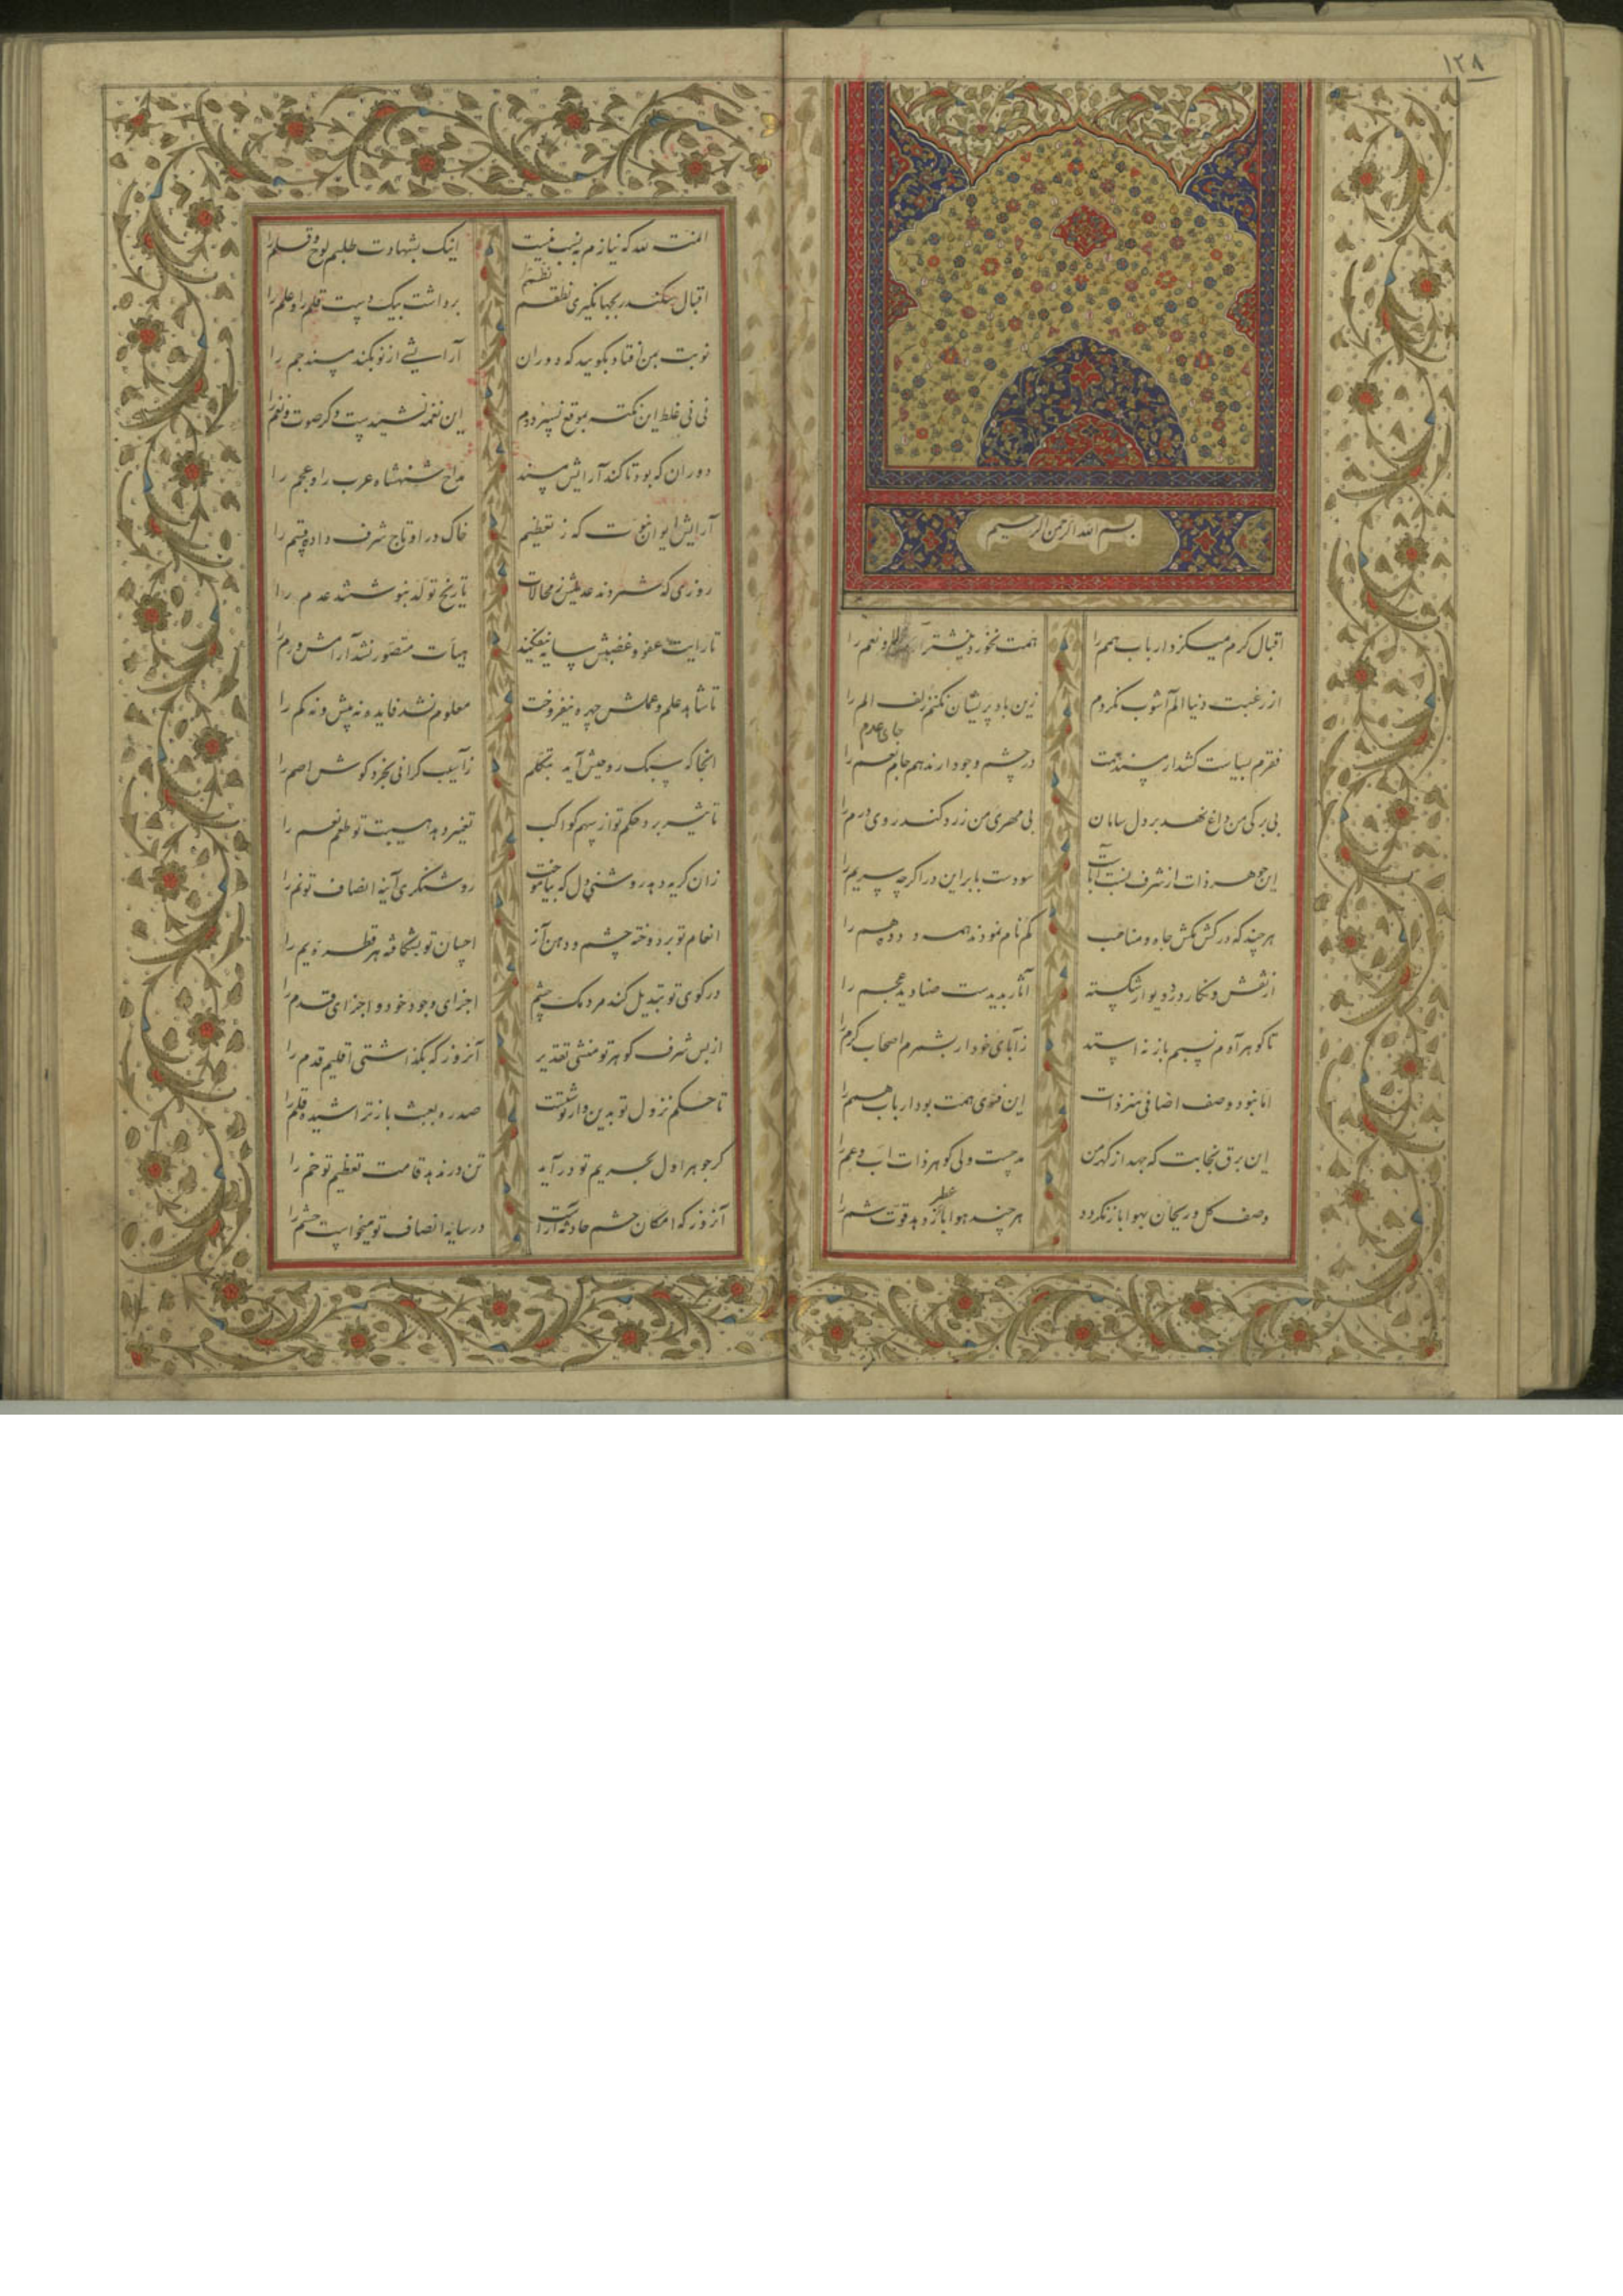 ۱۲۸
بسم الله الرحمن الرحیم
اقبال کرم میگزد ارباب همم را همت نخورد نیشتر لا و نعم را
از رغبت دنیا الم آشوب نکردم زین باد پریشان نکنم زلف الم را
جای عدم
فقرم بسیاست کشد از مسند همت در چشم وجود ار ندهم جای نعم را
بی برگی من داغ نهد بر دل سامان بی مهری من زرد کند روی درم را
این جوهر ذات از شرف نسبت آباست سودست بابر این در اگرچه پسریم را
هرچند که در کش مکش جاه و مناصب گم نام نمودند همه دوده هم را
از نقش و نگار در و دیوار شکسته آثار پدیدست صنادید عجم را
تا گوهر آدم نسبم باز نه استد ز آبای خود ار بشمرم اصحاب کرم را
اما نبود وصف اضافی هنر ذات این فتوی همت بود ارباب همم را
این برق نجابت که جهد از گهر من مدحست ولی گوهر ذات اب و عم را
عطر
وصف گل و ریحان بهوا باز نگردد هر چند هوا باز دهد قوت شم را
المنت لله که نیازم به نسب نیست اینک بشهادت طلبم لوح و قلم را
نظمم
اقبال سکندر بجهانگیری نطقم برداشت بیک دست قلم را و علم را
نوبت بمن افتاد بگویید که دوران آرایشی از نو بکند مسند جم را
نی نی غلط این نکته بموقع نسرودم این نغمه نشیدیست دگر صوت و نغم را
دوران که بود تا کند آرایش مسند مداح شهنشاه عرب را و عجم را
آرایش ایوان نبوت که ز تعظیم خاک در او تاج شرف داده قسم را
روزی که شمردند عدیلش ز محالات تاریخ تولد بنوشتند عدم را
تا رایت عفو و غضبش سایه نیفکند هیأت متصور نشد آرامش و رم را
تا شاهد علم و عملش چهره نیفروخت معلوم نشد فایده نه بیش و نه کم را
آنجا که سبک روحیش آید بتکلم ز آسیب گرانی بخرد گوش اصم را
تاثیر برد حکم تو از سهم کواکب تغییر دهد هیبت تو طعم نعم را
زان گریه دهد روشنی دل که بیاموخت روشنگری آینه انصاف تو نم را
انعام تو بر دوخته چشم و دهن آز احسان تو بشکافته هر قطره یم را
در کوی تو تبدیل کند مردمک چشم اجزای وجود خود و اجزای قدم را
از بس شرف گوهر تو منشی تقدیر آنروز که بگذاشتی اقلیم قدم را
تا حکم نزول تو بدین دار نوشتست صد ره بعبث باز تراشیده قلم را
گر جوهر اول بحریم تو درآید تن در ندهد قامت تعظیم تو خم را
آنروز که امکان حشم حادثه آراست در سایه انصاف تو میخواست حشم را